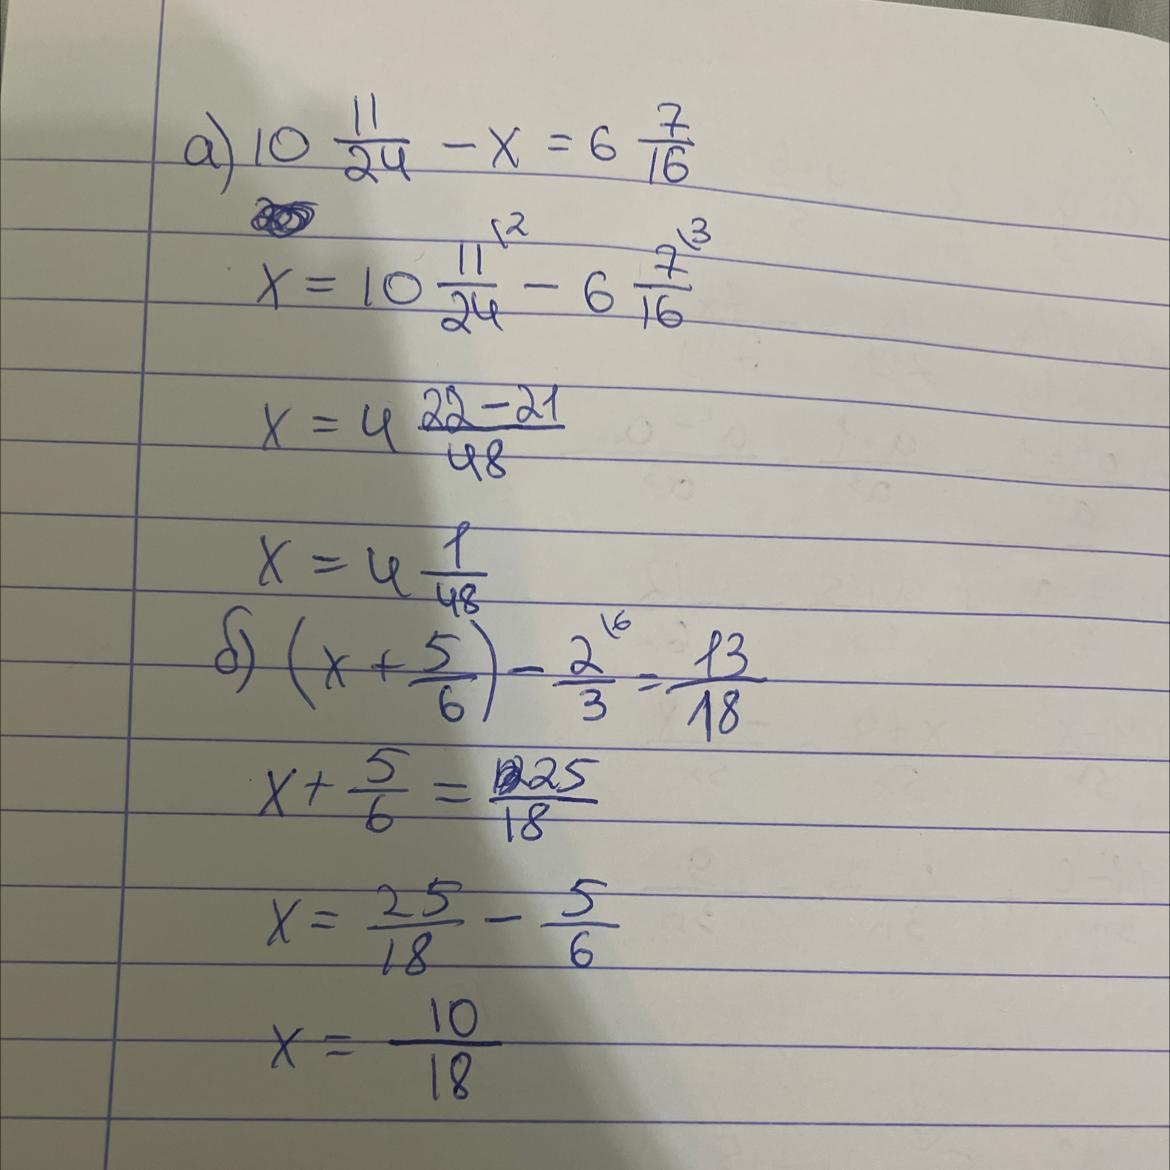 а) 10 11/24 - x = 6 7/16
x = 10 11\2/24 - 6 7\3/16
x = 4 22-21/48
x = 4 1/48
б) (x + 5/6) - 2\6/3 = 13/18
x + 5/6 = 25/18
x = 25/18 - 5/6
x = 10/18